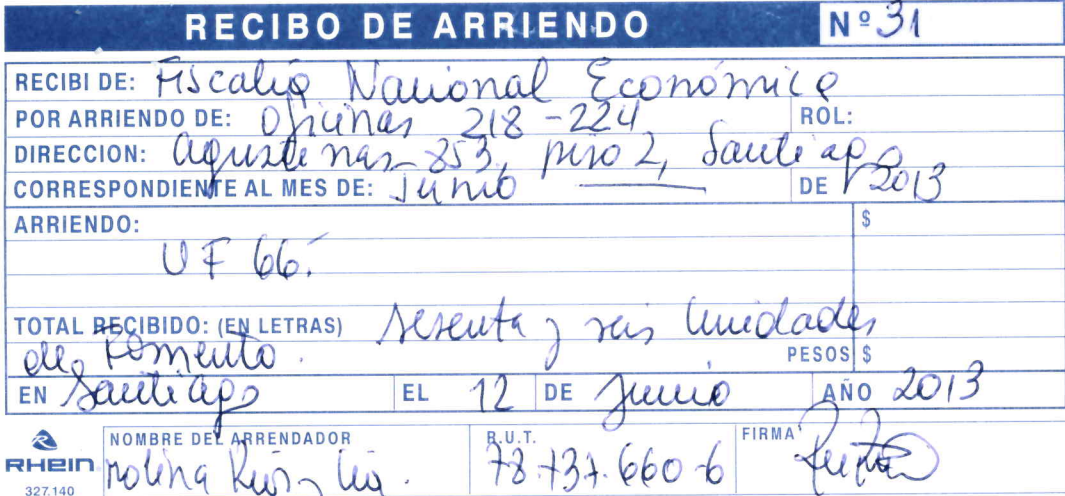 RECIBO DE ARRIENDO Nº 31
RECIBI DE: Fiscalia Nacional Económica
POR ARRIENDO DE: Oficinas 218-224 ROL:
DIRECCION: Agustinas 853, piso 2, Santiago
CORRESPONDIENTE AL MES DE: Junio DE 2013
ARRIENDO: $
UF 66.-
TOTAL RECIBIDO: (EN LETRAS) Sesenta y seis Unidades
de Fomento. PESOS $
EN Santiago EL 12 DE Junio AÑO 2013
NOMBRE DEL ARRENDADOR R.U.T. FIRMA
RHEIN Molina Ruiz y Cia. 78.737.660-6
327.140